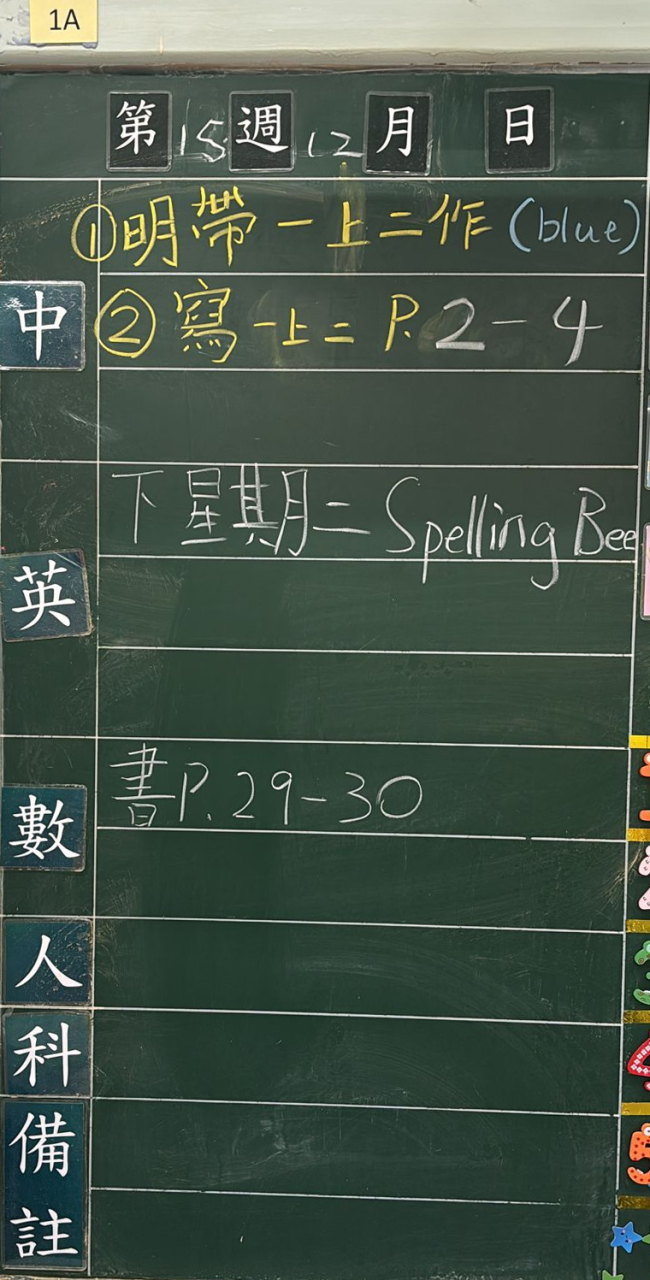 1A
第15週12月 日
①明帶一上二作(blue)
中
②寫一上二P.2-4
下星期二Spelling Bee
英
書P.29-30
數
人
科
備
註